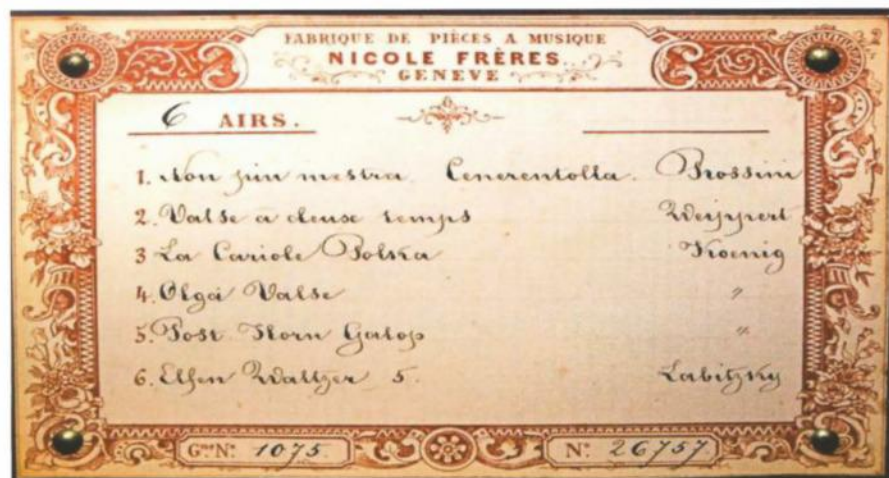 FABRIQUE DE PIÈCES A MUSIQUE
NICOLE FRÈRES
GENEVE
6 AIRS.
1. Non piu mestra. Cenerentolla. Rossini
2. Valse a deuse temps Weippert
3 La Cariole Polska Koenig
4. Olga Valse "
5. Post Horn Galop "
6. Elfen Waltzer 5. Labitzky
Gme No. 1075. No. 26757.